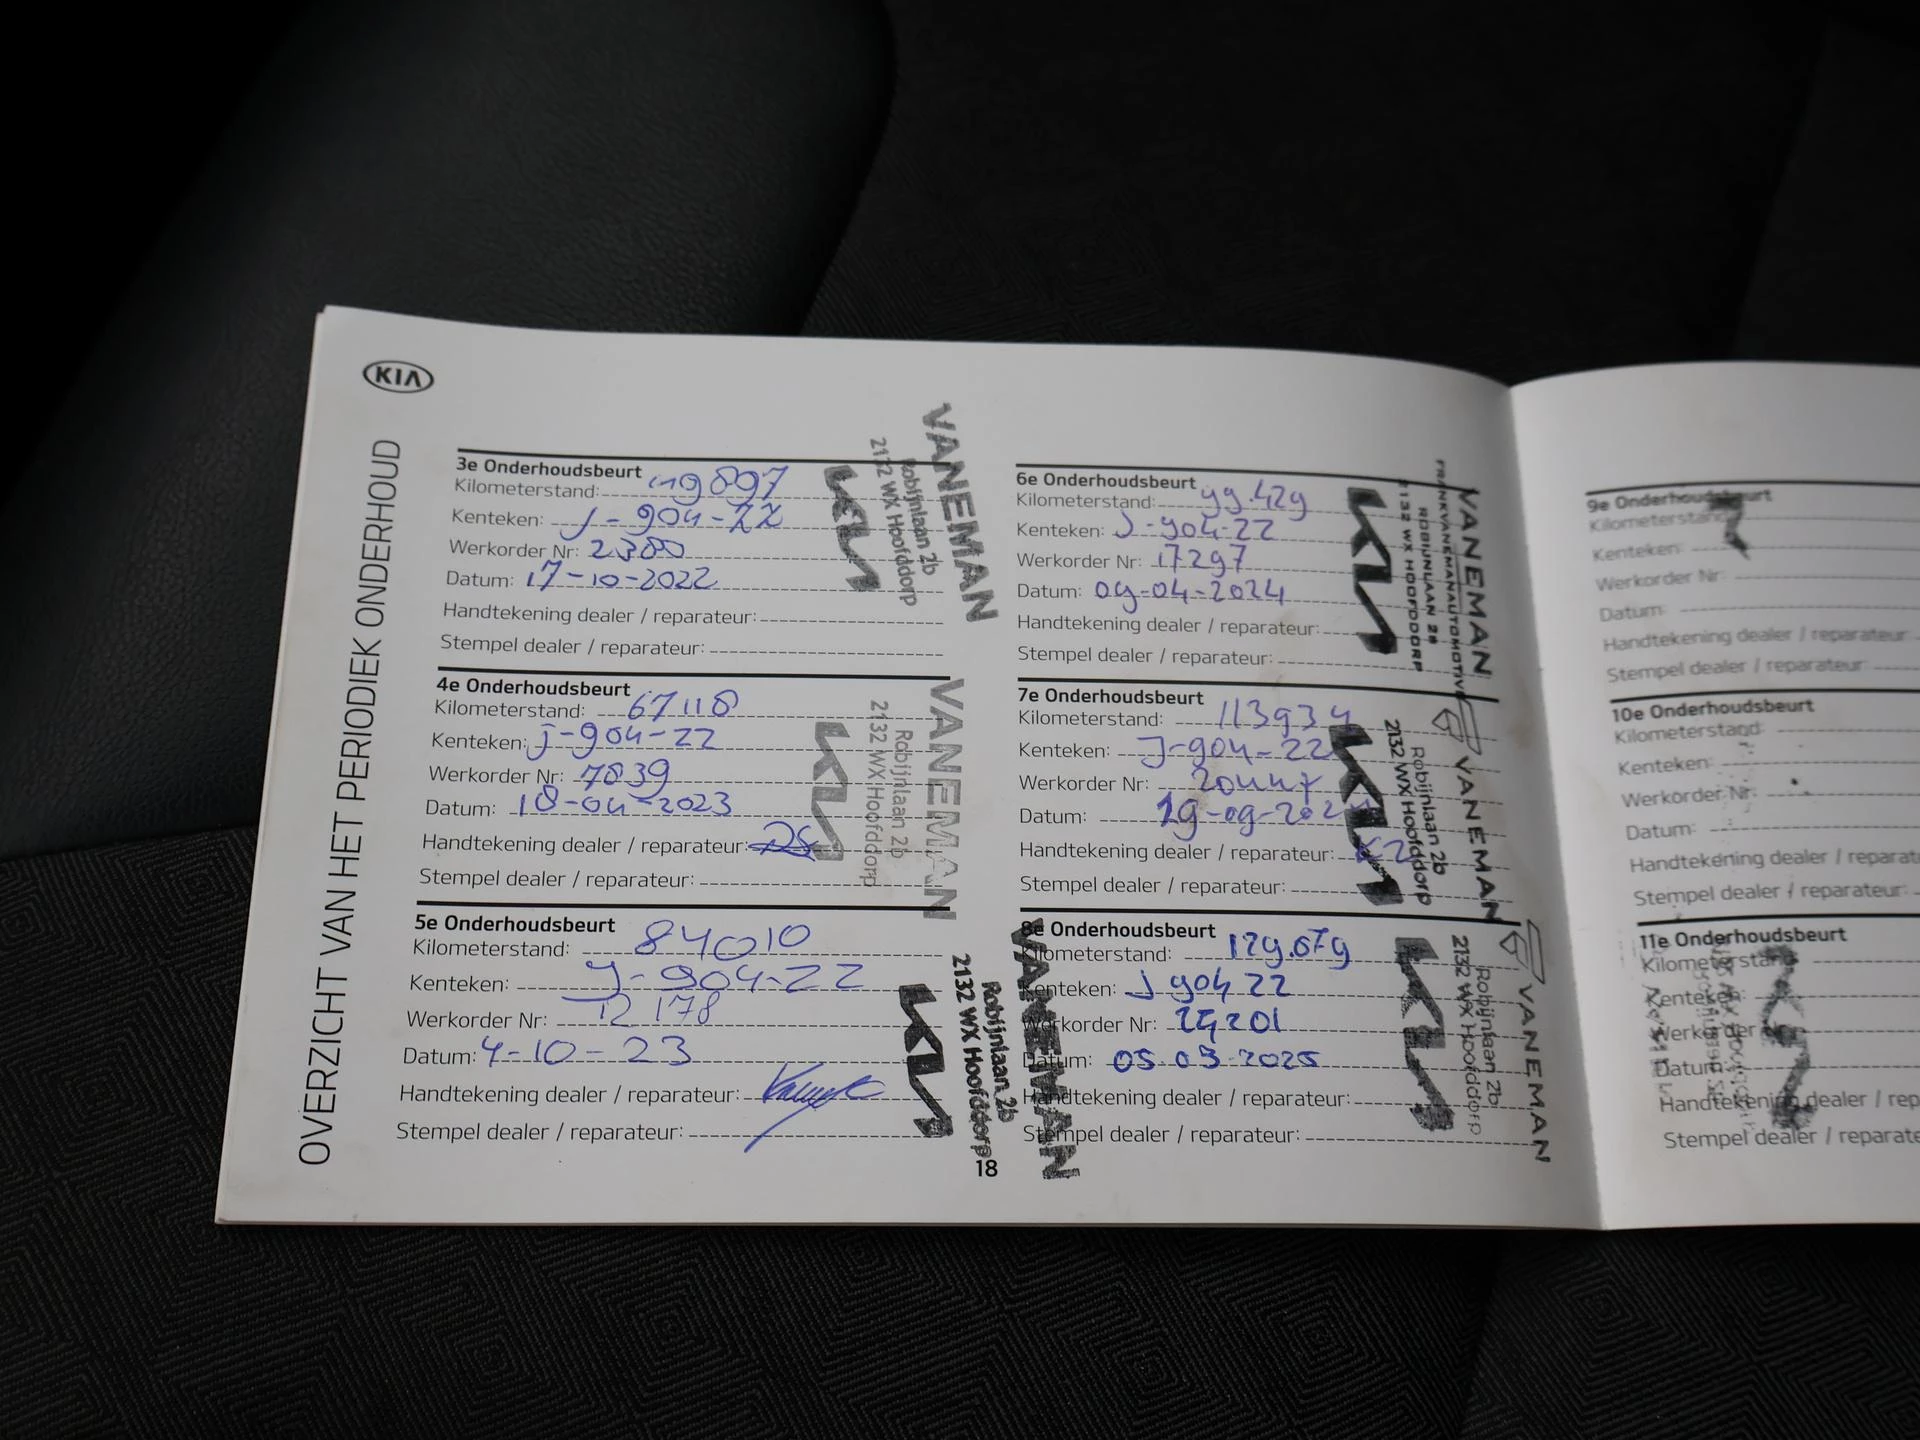 KIA
OVERZICHT VAN HET PERIODIEK ONDERHOUD
3e Onderhoudsbeurt
Kilometerstand: 49897
Kenteken: J-904-22
Werkorder Nr: 2380
Datum: 17-10-2022
Handtekening dealer / reparateur:
Stempel dealer / reparateur:
VANEMAN
Robijnlaan 2b
2132 WX Hoofddorp
KIA
4e Onderhoudsbeurt
Kilometerstand: 67118
Kenteken: j-904-22
Werkorder Nr: 7839
Datum: 18-04-2023
Handtekening dealer / reparateur:
Stempel dealer / reparateur:
VANEMAN
Robijnlaan 2b
2132 WX Hoofddorp
KIA
5e Onderhoudsbeurt
Kilometerstand: 84010
Kenteken: J-904-22
Werkorder Nr: 12178
Datum: 4-10-23
Handtekening dealer / reparateur:
Stempel dealer / reparateur:
VANEMAN
Robijnlaan 2b
2132 WX Hoofddorp
KIA
18
6e Onderhoudsbeurt
Kilometerstand: 99.429
Kenteken: J-904-22
Werkorder Nr: 17297
Datum: 09-04-2024
Handtekening dealer / reparateur:
Stempel dealer / reparateur:
VANEMAN
FRANKVANEMANAUTOMOTIVE
ROBIJNLAAN 2B
2132 WX HOOFDDORP
KIA
7e Onderhoudsbeurt
Kilometerstand: 113934
Kenteken: J-904-22
Werkorder Nr: 20447
Datum: 19-09-2024
Handtekening dealer / reparateur:
Stempel dealer / reparateur:
VANEMAN
Robijnlaan 2b
2132 WX Hoofddorp
KIA
8e Onderhoudsbeurt
Kilometerstand: 129.679
Kenteken: J 904 22
Werkorder Nr: 24201
Datum: 05 03 2025
Handtekening dealer / reparateur:
Stempel dealer / reparateur:
VANEMAN
Robijnlaan 2b
2132 WX Hoofddorp
KIA
9e Onderhoudsbeurt
Kilometerstand
Kenteken:
Werkorder Nr:
Datum:
Handtekening dealer / reparateur
Stempel dealer / reparateur:
10e Onderhoudsbeurt
Kilometerstand:
Kenteken:
Werkorder Nr:
Datum:
Handtekening dealer / reparat
Stempel dealer / reparateur:
11e Onderhoudsbeurt
Kilometerstand
Kenteken
Werkorder
Datum
Handtekening dealer / rep
Stempel dealer / reparate